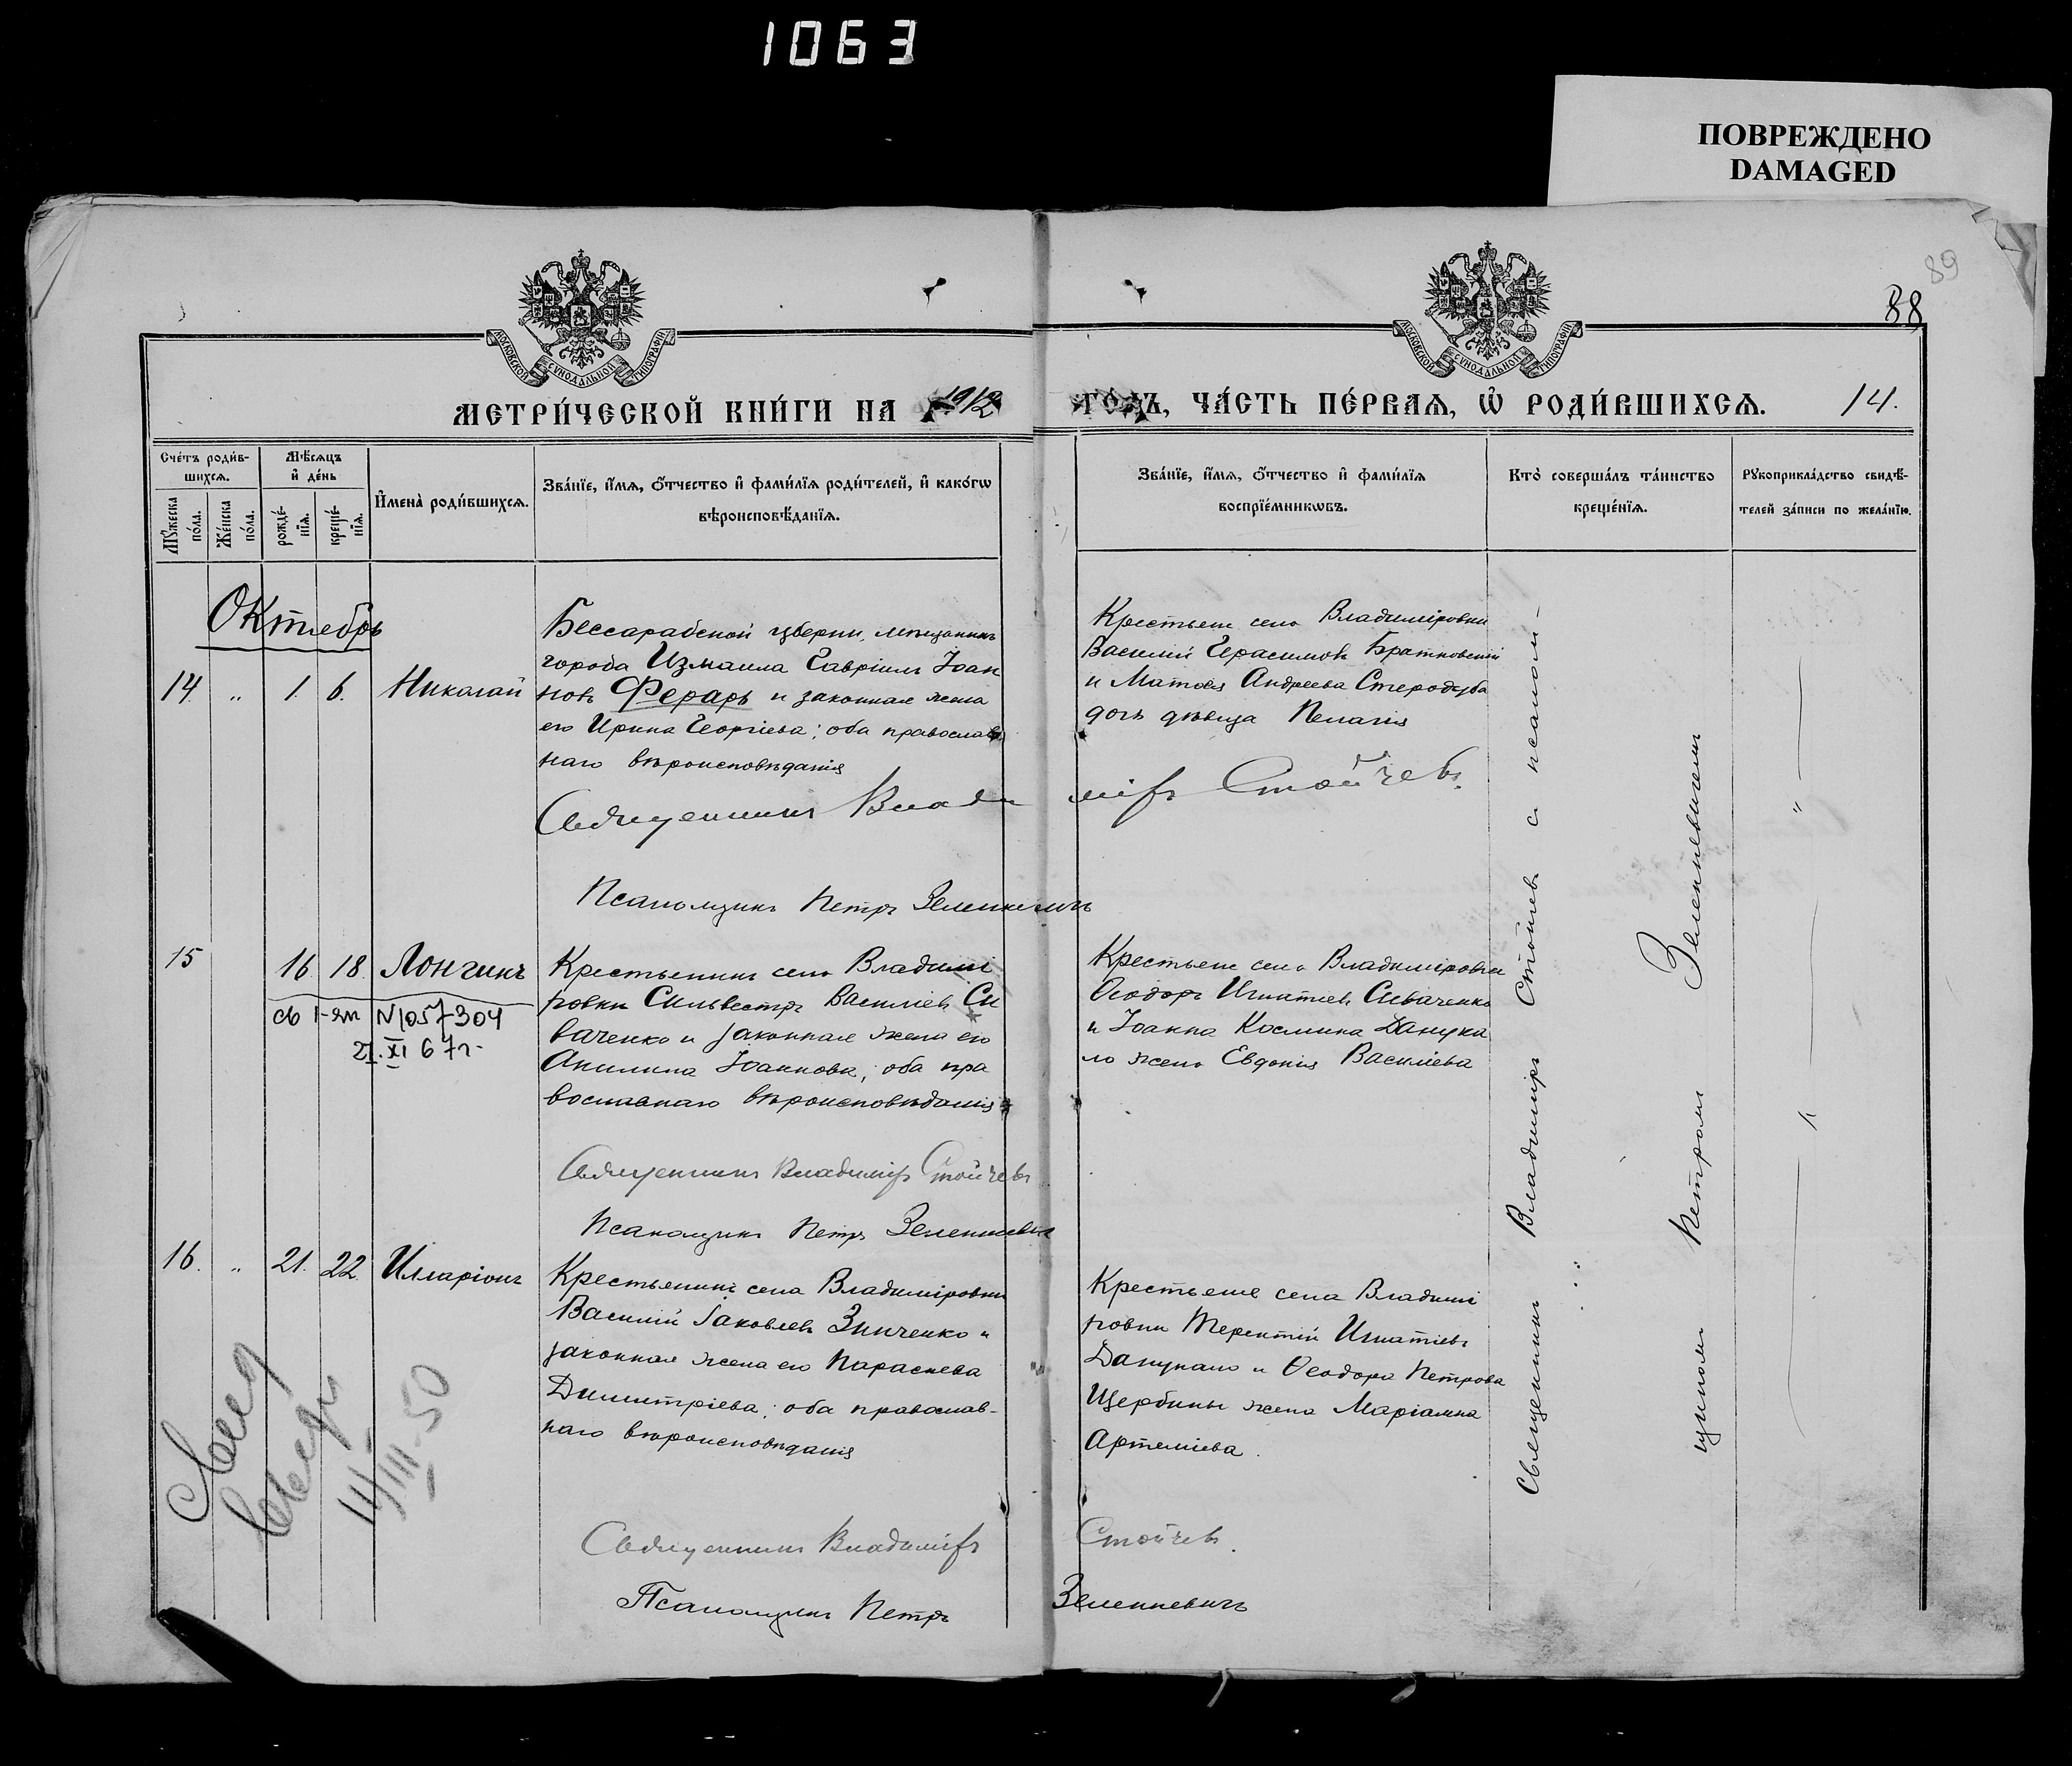 1063
ПОВРЕЖДЕНО
DAMAGED
89
88
МОСКОВСКОЙ СѴНОДАЛЬНОЙ ТИПОГРАФІИ
МОСКОВСКОЙ СѴНОДАЛЬНОЙ ТИПОГРАФІИ
МЕТРИ́ЧЕСКОЙ КНИ́ГИ НА 1912 ГО́ДЪ, ЧА́СТЬ ПЕ́РВАѦ, Ѡ҆ РОДИ́ВШИХСѦ. 14.
Сче́тъ роди́в-
шихсѧ.
Мꙋ́жеска
по́ла.
Же́нска
по́ла.
Мѣ́сѧцъ
и҆ де́нь
рожде́-
нїѧ.
креще́-
нїѧ.
И҆мена̀ роди́вшихсѧ.
Зва́нїе, и҆́мѧ, ѻ҆́тчество и҆ фами́лїѧ роди́телей, и҆ како́гѡ
вѣроисповѣ́данїѧ.
Зва́нїе, и҆́мѧ, ѻ҆́тчество и҆ фами́лїѧ
воспрїе́мникѡвъ.
Кто̀ соверша́лъ та́инство
креще́нїѧ.
Рꙋкоприкла́дство свидѣ́-
телей за́писи по жела́нїю.
Октябрь
14. " 1. 6. Николай
Бессарабской губерни, мѣщанинъ
города Измаила Гавріилъ Іоан
новъ Ферарь и законная жена
его Ирина Георгіева; оба православ
наго вѣроисповѣданія
Крестьяне села Владиміровки
Василій Герасимовъ Братновскій
и Матѳея Андреева Стародуба
дочь дѣвица Пелагія
Священникъ Владиміръ Стойчевъ.
Псаломщикъ Петръ Зеленкевичъ
15 16 18. Лонгинъ
св 1-ям №1057304
21.XI 67г.
Крестьянинъ села Владимі
ровки Сильвестръ Василіевъ Си
ваченко и законная жена его
Акилина Іоаннова; оба пра
вославнаго вѣроисповѣданія
Крестьяне села Владиміровки
Ѳеодоръ Игнатіевъ Сиваченко
и Іоанна Космина Данука
ло жена Евдокія Василіева
Священникъ Владиміръ Стойчевъ
Псаломщикъ Петръ Зеленкевичъ
16. " 21. 22. Илларіонъ
Крестьянинъ села Владиміровки
Василій Іаковлевъ Зинченко и
законная жена его Параскева
Димитріева; оба православ-
наго вѣроисповѣданія
Крестьяне села Владимі
ровки Терентій Игнатіевъ
Данукало и Ѳеодора Петрова
Щербины жена Маріамна
Артеміева.
14/III-50
Священникъ Владиміръ Стойчевъ.
Псаломщикъ Петръ Зеленкевичъ
Священникъ Владиміръ Стойчевъ съ псалом-
щикомъ Петромъ Зеленкевичемъ